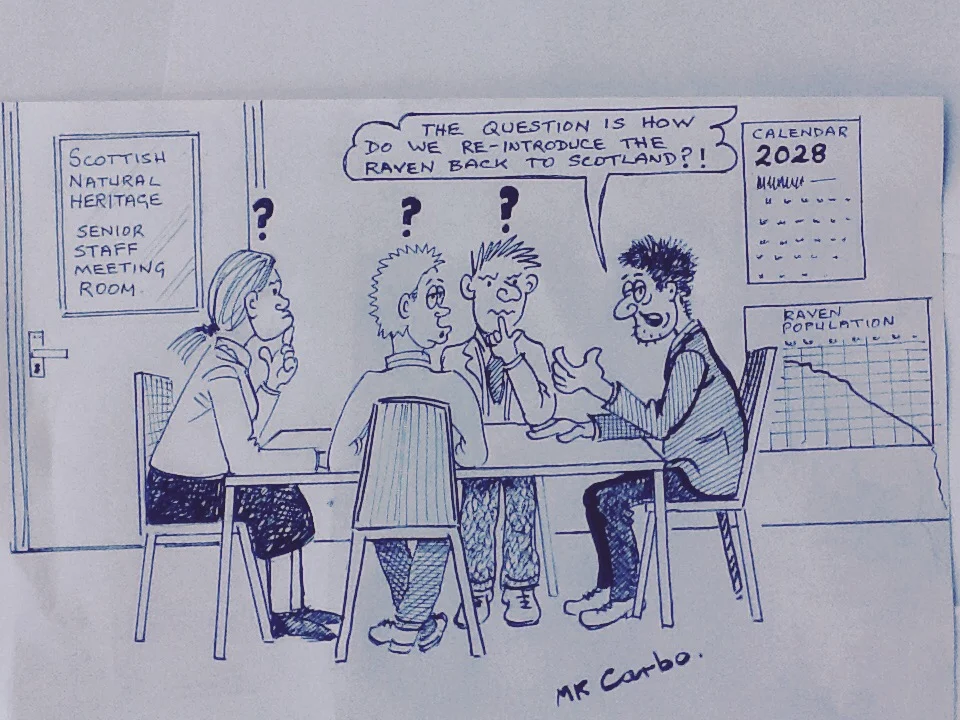 SCOTTISH
NATURAL
HERITAGE
SENIOR
STAFF
MEETING
ROOM.
?
?
?
THE QUESTION IS HOW
DO WE RE-INTRODUCE THE
RAVEN BACK TO SCOTLAND?!
CALENDAR
2028
RAVEN
POPULATION
MR Carbo.